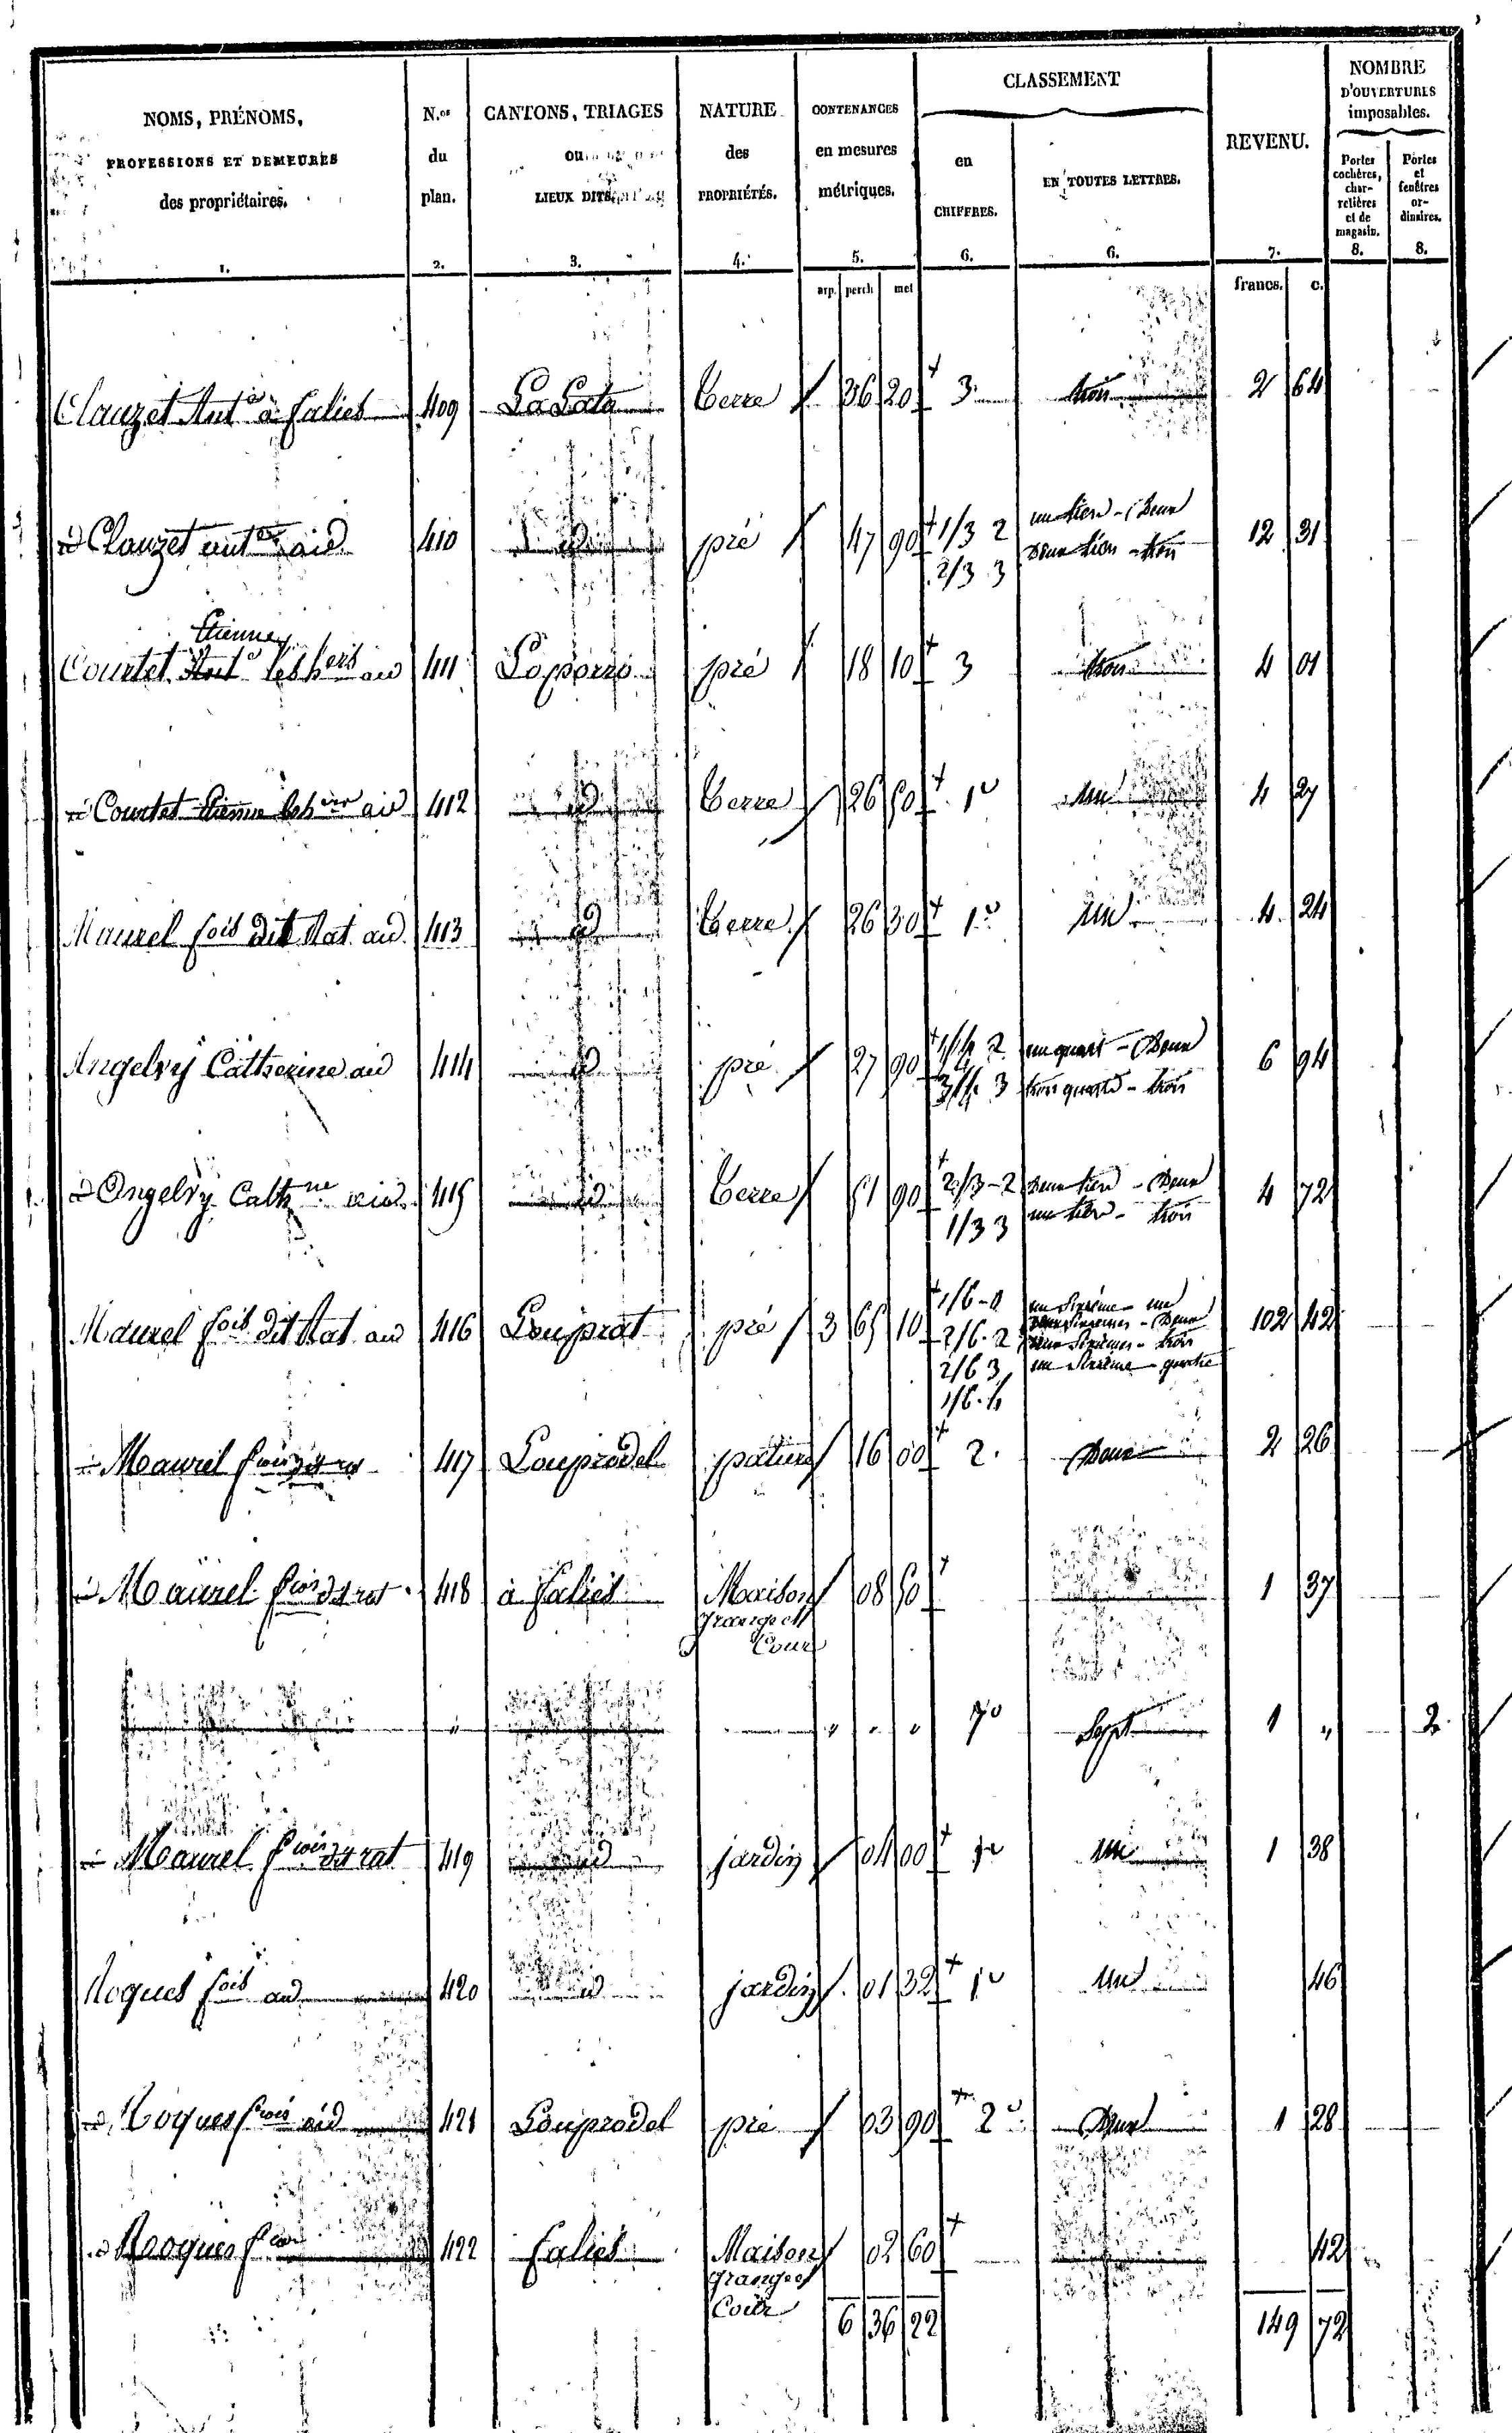 NOMS, PRÉNOMS, PROFESSIONS ET DEMEURES des propriétaires. 1.
N.os du plan. 2.
CANTONS, TRIAGES ou LIEUX DITS. 3.
NATURE des PROPRIÉTÉS. 4.
CONTENANCES en mesures métriques. 5.
CLASSEMENT
en CHIFFRES. 6.
EN TOUTES LETTRES. 6.
REVENU. 7.
NOMBRE D'OUVERTURES imposables.
Portes cochères, charretières et de magasin. 8.
Portes et fenêtres ordinaires. 8.
arp. perch met francs. c.
Clauzet Ant.e à faliés 409 La Lata terre 36 20 3 trois 2 64
Clauzet ant.e aid 410 id pré 47 90 1/3 2 un tiers - Deux 12 31
2/3 3 Deux tiers - trois
Etienne
Courtet Ant.e les h.ers 411 pré 18 10 3 trois 4 01
Courtet Etienne les h.ers aid 412 id terre 26 50 1e un 4 27
Maurel fois dit Rat aid 413 id terre 26 30 1e un 4 24
Angelvy Catherine aid 414 id pré 27 90 1/4 2 un quart - Deux 6 94
3/4 3 trois quarts - trois
Angelvy Cath.ne aid 415 id terre 51 90 2/3 - 2 Deux tiers - Deux 4 72
1/3 3 un tiers - trois
Maurel fois dit Rat aid 416 Louprat pré 3 65 10 1/6 - 1 un Sixième - un 102 42
2/6 - 2 Deux Sixièmes - Deux
2/6 3 Deux Sixièmes - trois
1/6 - 4 un Sixième - quatre
Maurel 417 Louprodel pature 16 00 2 Deux 2 26
Maurel fois dt rat 418 à faliés Maison 08 50 1 37
grange et
Cour
" " " " 7e Sept 1 " 2
Maurel fois dt rat 419 id jardin 04 00 1e un 1 38
Roques fois aid 420 id jardin 01 32 1e un 46
Roques fois aid 421 Louprodel pré 03 90 2e Deux 1 28
Roques 422 faliés Maison 02 60 42
grange et
Cour
6 36 22 149 72